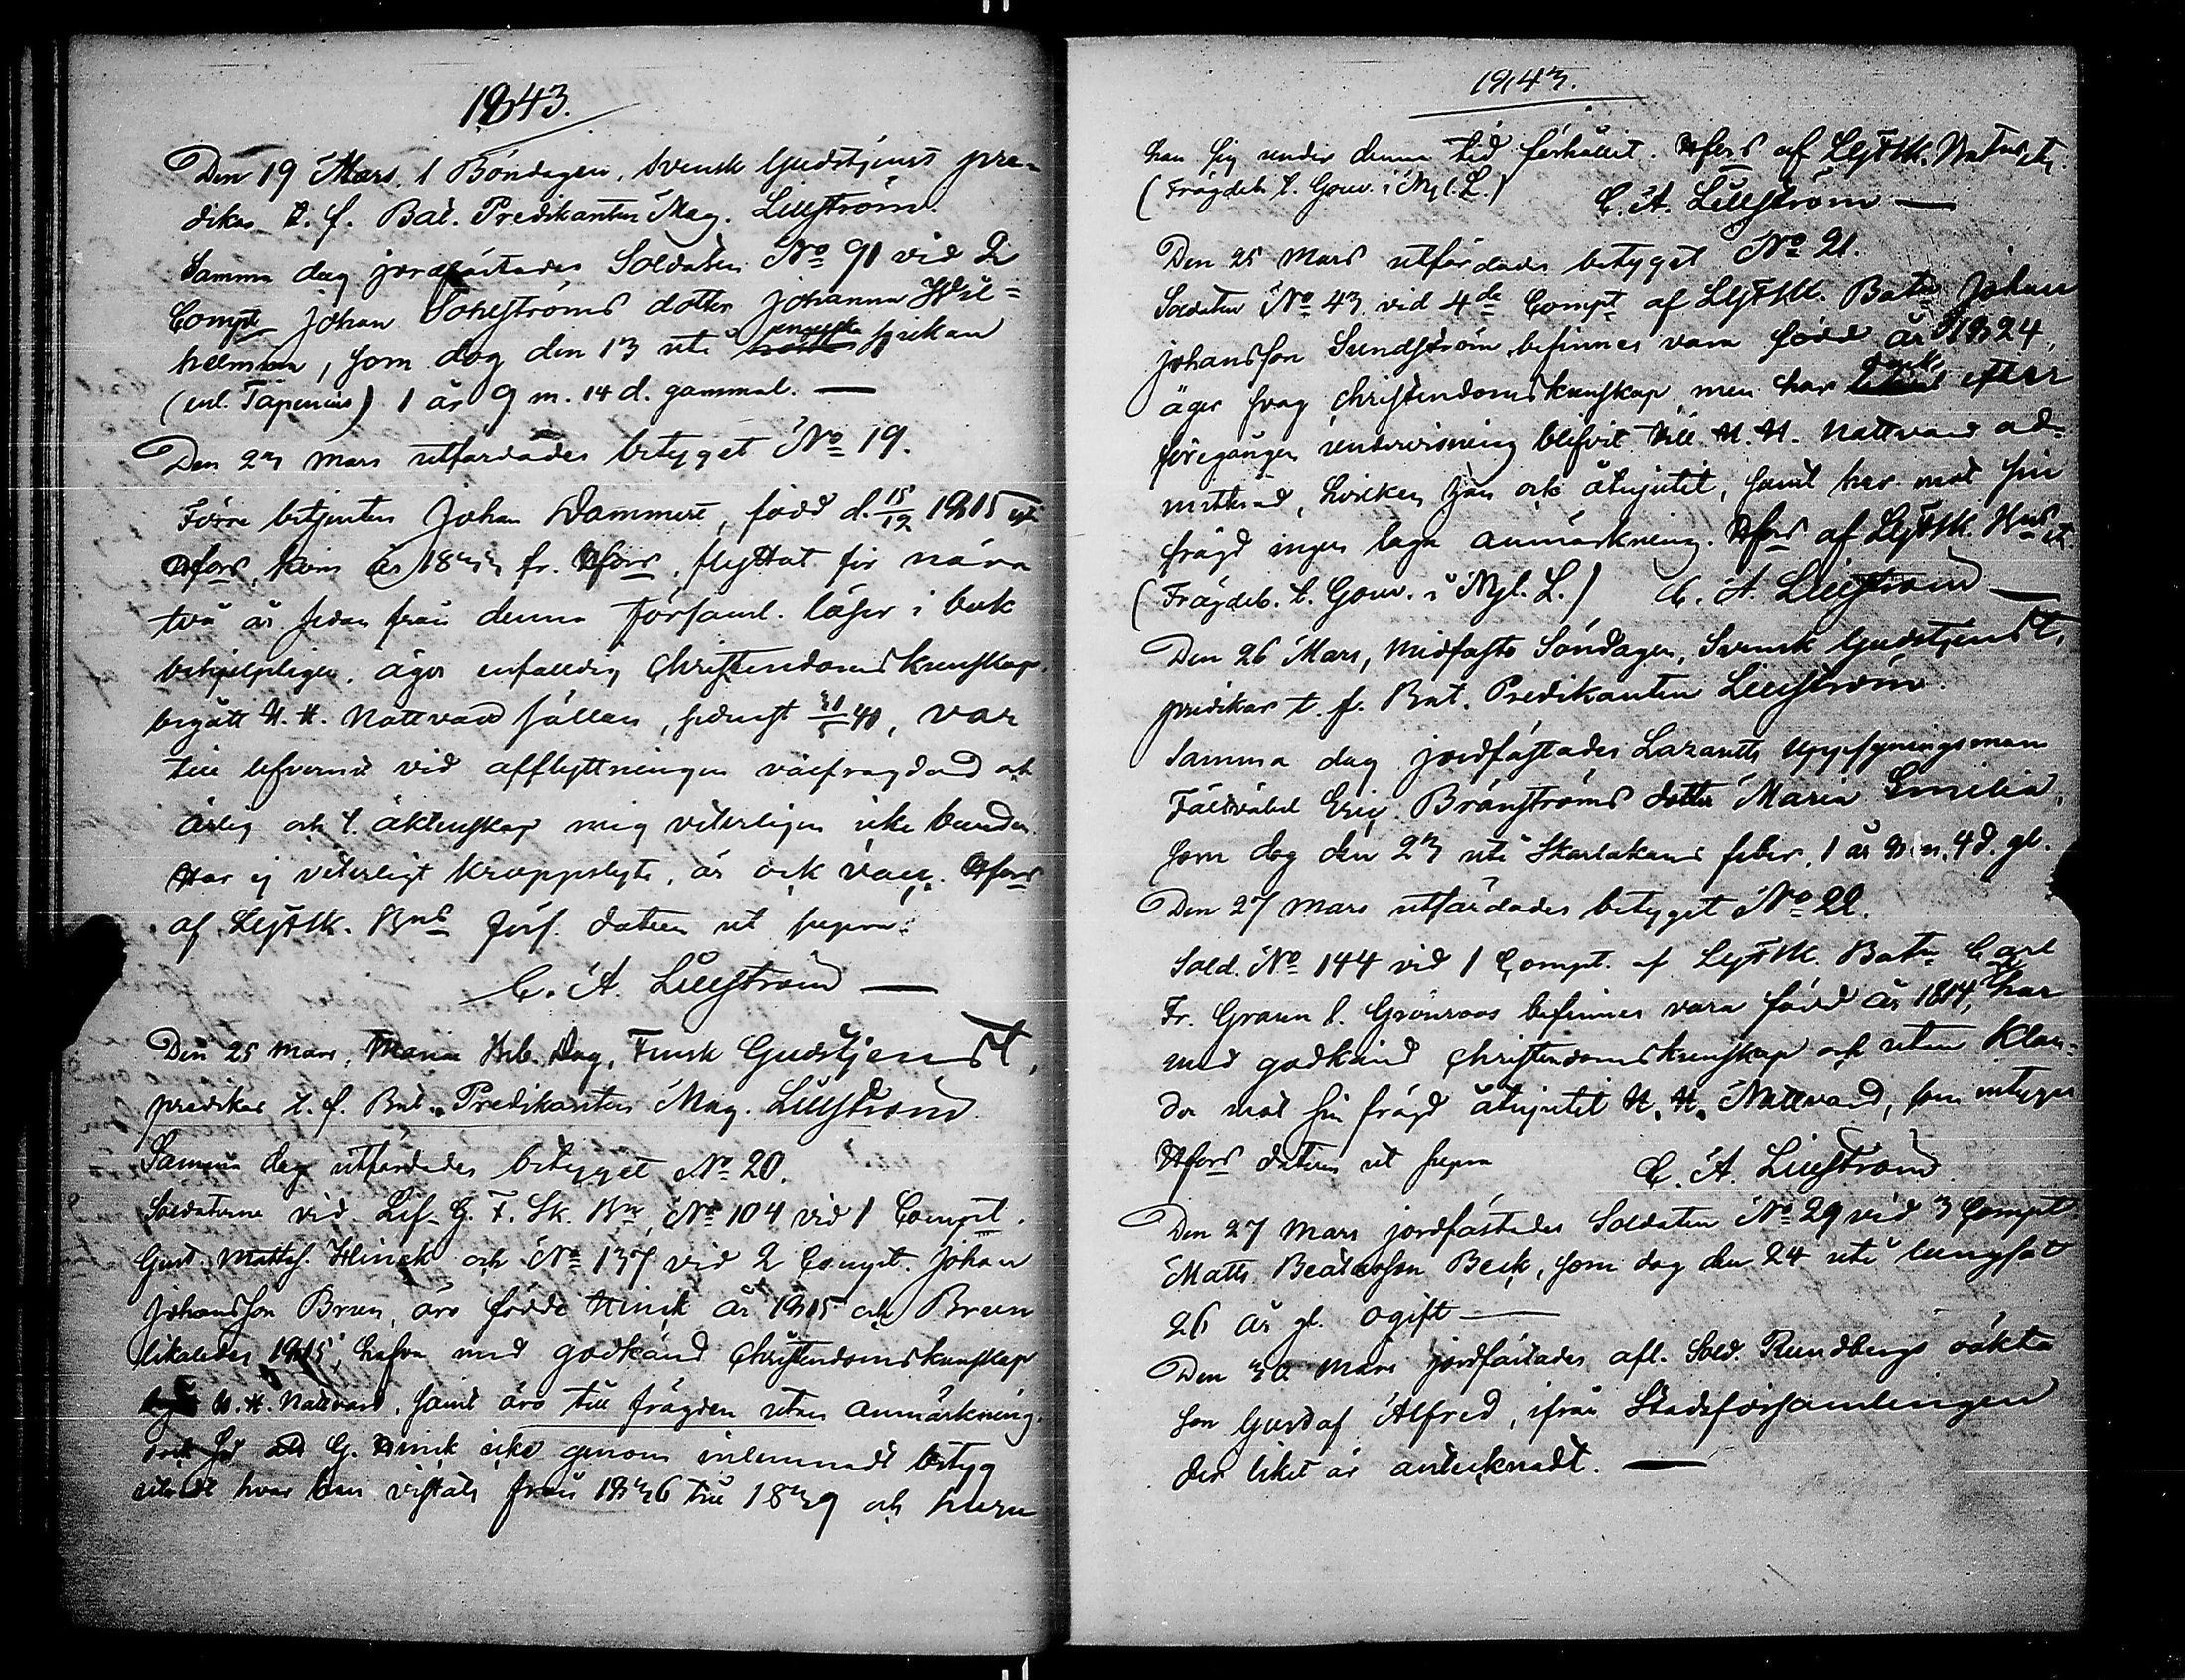 1843.
Den 19 Mars, 1 Böndagen, Svensk Gudstjenst pre-
dikar t. f. Bat. Predikanten Mag. Lillström.
Samma dag jordfästades Soldaten No 91 vid 2
Compt Johan Johan dotter Johanna Wil=
helmina, som dog den 13 uti engelska sjukan
(enl. Tapenius) 1 år 9 m. 14 d. gammal. —
Den 23 Mars utfärdades betyget No 19.
Förre betjenten Johan Dammert, född d. 15/12 1815 uti
Hfors, kom år 1833 fr. Hfors, flyttat för nära
två år sedan från denna Församl. läser i bok
behjelpligen, äger enfaldig Christendomskunskap,
begått H. H. Nattvard sällan, sednast 40, var
till lefvernet vid afflyttningen välfrägdad och
ärlig och t. äktenskap mig veterligen icke bunden.
Har ej veterligt kroppslyte, är ock vacc. Hfors
af LGFSk. Bns Förs. datum ut supra.
C. A. Lillström —
Den 25 Mars, Mariæ Beb. Dag, Finsk Gudstjenst,
predikar t. f. Bat. Predikanten Mag. Lillström.
Samma dag utfärdades betyget No 20.
Soldaterne vid Lif-G. F. Sk. Bn, No 104 vid 1 Compt.
Gust. Mattss. Hinck och No 137 vid 2 Compt. Johan
Johansson Bruun, äro födde Hinck år 1815 och Bruun
likaledes 1815 hafva med godkänd Christendomskunskap
H. H. Nattvard, samt äro till frägden utan anmärkning,
dock har G. Hinck icke genom inlemnadt betyg
utredt hvar han vistats från 1836 till 1839 och huru
1843.
han sig under denna tid förhållit. Hfors af LGFSk. Bat
(Frägdeb. t. Gouv. i Nyl. L.) C. A. Lillström —
Den 25 Mars utfärdades betyget No 21.
Soldaten No 43 vid 4de Compt af LGFSk. Batn Johan
Johansson Sundström befinnes vara född år 1824,
äger svag Christendomskunskap men har dock efter
föregången undervisning blifvit till H. H. Nattvard ad-
mitterad, hvilken han ock åtnjutit, samt har mot sin
frägd ingen laga anmärkning. Hfors af LGFSk. Bns
(Frägdeb. t. Gouv. i Nyl. L.) C. A. Lillström —
Den 26 Mars, Midfasto Söndagen, Svensk Gudstjenst,
predikar t. f. Bat. Predikanten Lillström.
Samma dag jordfästades Lazaretts Uppsyningsman
Fältväbel Eric Brånströms dotter Maria Emilia,
som dog den 23 uti Skarlakans feber, 1 år 8 m. 4 d. gl.
Den 27 Mars utfärdades betyget No 22.
Sold. No 144 vid 1 Compt. af LGFSk. Batn Carl
Fr. Graan l. Grönroos befinnes vara född år 1814, har
med godkänd Christendomskunskap och utan klan-
der mot sin frägd åtnjutit H. H. Nattvard, som intygas
Hfors datum ut supra C. A. Lillström
Den 27 Mars jordfästades Soldaten No 29 vid 3 Compt
Matts Beck, som dog den 24 uti lungsot
26 år gl. ogift —
Den 30 Mars jordfästades afl. Sold. Rundbergs oäkta
son Gustaf Alfred, ifrån Stadsförsamlingen
der liket är antecknadt. —